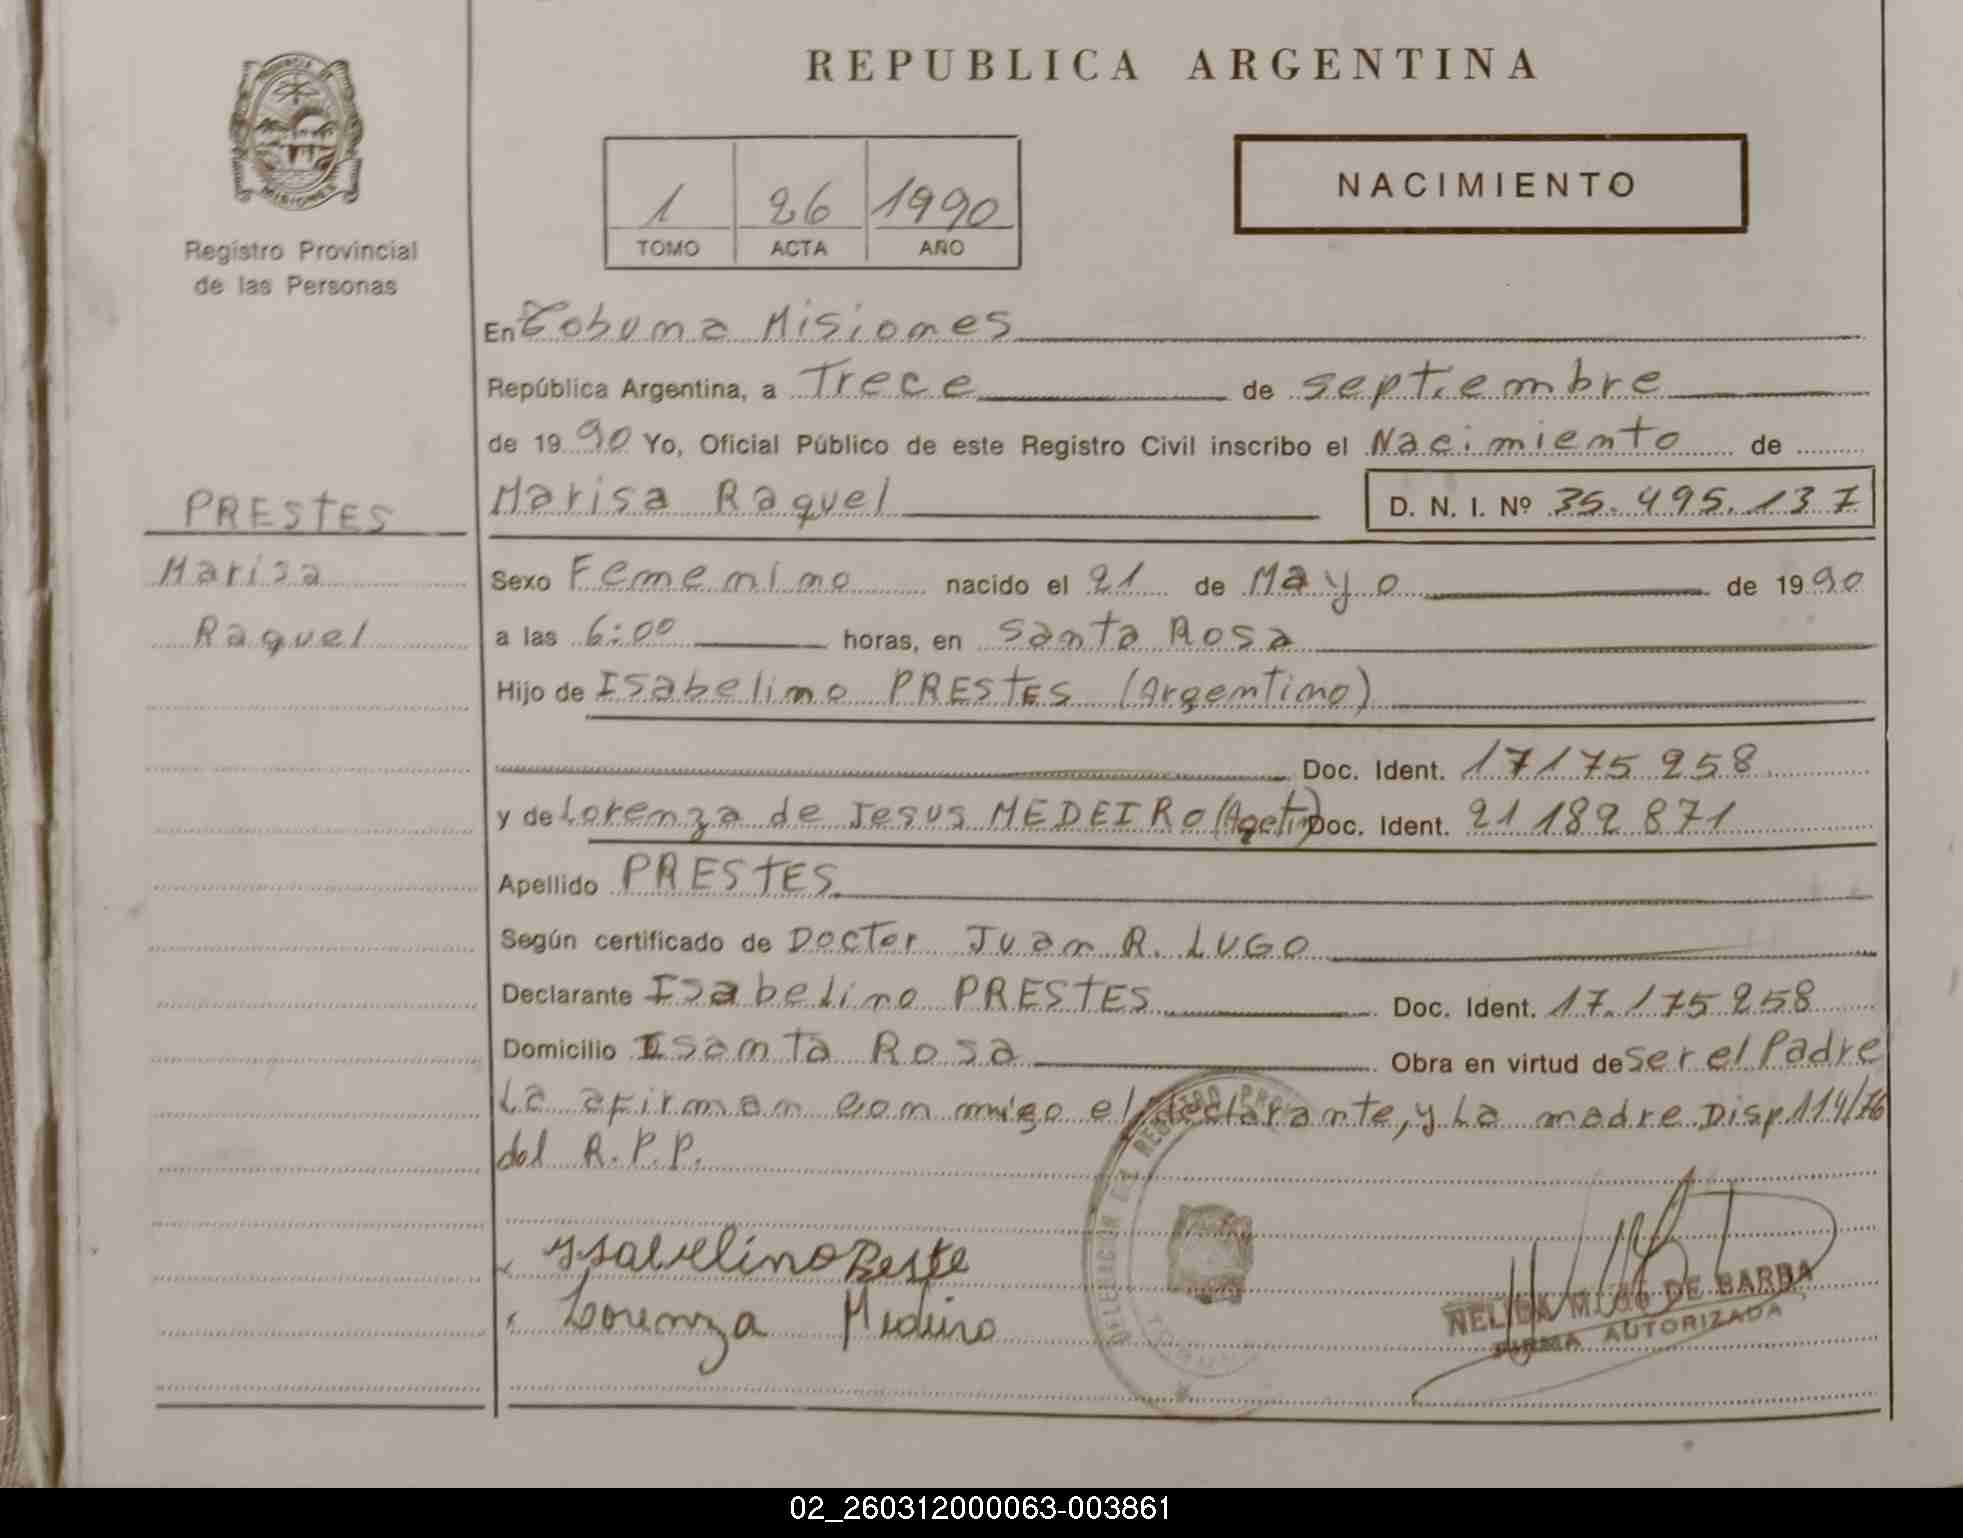 REPUBLICA ARGENTINA
PROVINCIA DE
MISIONES
Registro Provincial
de las Personas
1 26 1990
TOMO ACTA AÑO
NACIMIENTO
En Tobuna Misiones
República Argentina, a Trece de septiembre
de 1990 Yo, Oficial Público de este Registro Civil inscribo el Nacimiento de
PRESTES
Marisa
Raquel
Marisa Raquel D. N. I. Nº 35.495.137
Sexo Femenino nacido el 21 de Mayo de 1990
a las 6:00 horas, en Santa Rosa
Hijo de Isabelino PRESTES (Argentino)
Doc. Ident. 17175258
y de Lorenza de Jesus MEDEIRO (Agetin) Doc. Ident. 21182871
Apellido PRESTES
Según certificado de Doctor Juan R. LUGO
Declarante Isabelino PRESTES Doc. Ident. 17.175258
Domicilio Santa Rosa Obra en virtud de ser el Padre
La afirman con migo el declarante, y La madre Disp 114/76
del R.P.P.
Ysavelino Peste
Lorenza Mediero
DELEGACION REGISTRO
DE BARBA
FIRMA AUTORIZADA
02_260312000063-003861